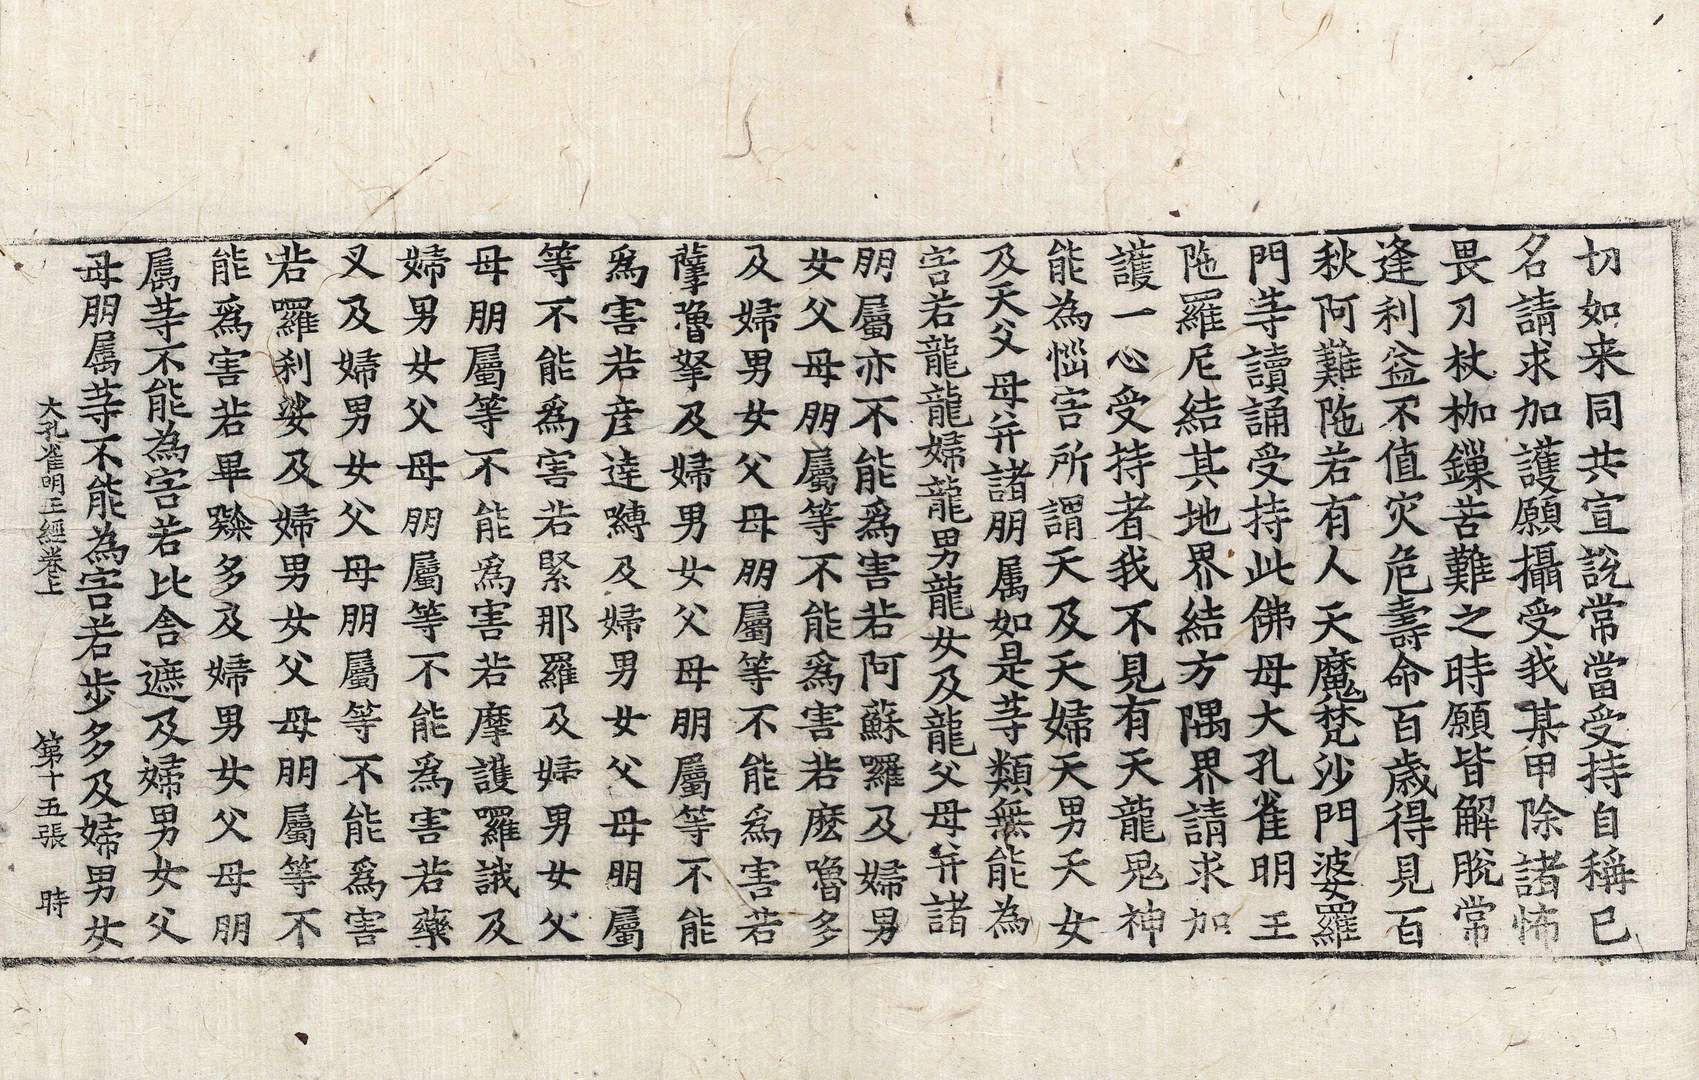 切如来同共宣說常當受持自稱已
名請求加護願攝受我某甲除諸怖
畏刀杖枷鏁苦難之時願皆解脫常
逢利益不值灾危壽命百歲得見百
秋阿難陁若有人天魔梵沙門婆羅
門等讀誦受持此佛母大孔雀明王
陁羅尼結其地界結方隅界請求加
護一心受持者我不見有天龍鬼神
能為惱害所謂天及天婦天男天女
及天父母并諸朋属如是等類無能為
害若龍龍婦龍男龍女及龍父母并諸
朋屬亦不能爲害若阿蘇囉及婦男
女父母朋屬等不能爲害若麽嚕多
及婦男女父母朋屬等不能爲害若
孽嚕拏及婦男女父母朋屬等不能
爲害若彥達嚩及婦男女父母朋屬
等不能爲害若緊那羅及婦男女父
母朋屬等不能爲害若摩護囉誐及
婦男女父母朋屬等不能爲害若藥
叉及婦男女父母朋屬等不能爲害
若囉剎娑及婦男女父母朋屬等不
能爲害若畢㘑多及婦男女父母朋
属等不能為害若比舍遮及婦男女父
母朋属等不能為害若步多及婦男女
大孔雀明王經卷上 第十五張 時